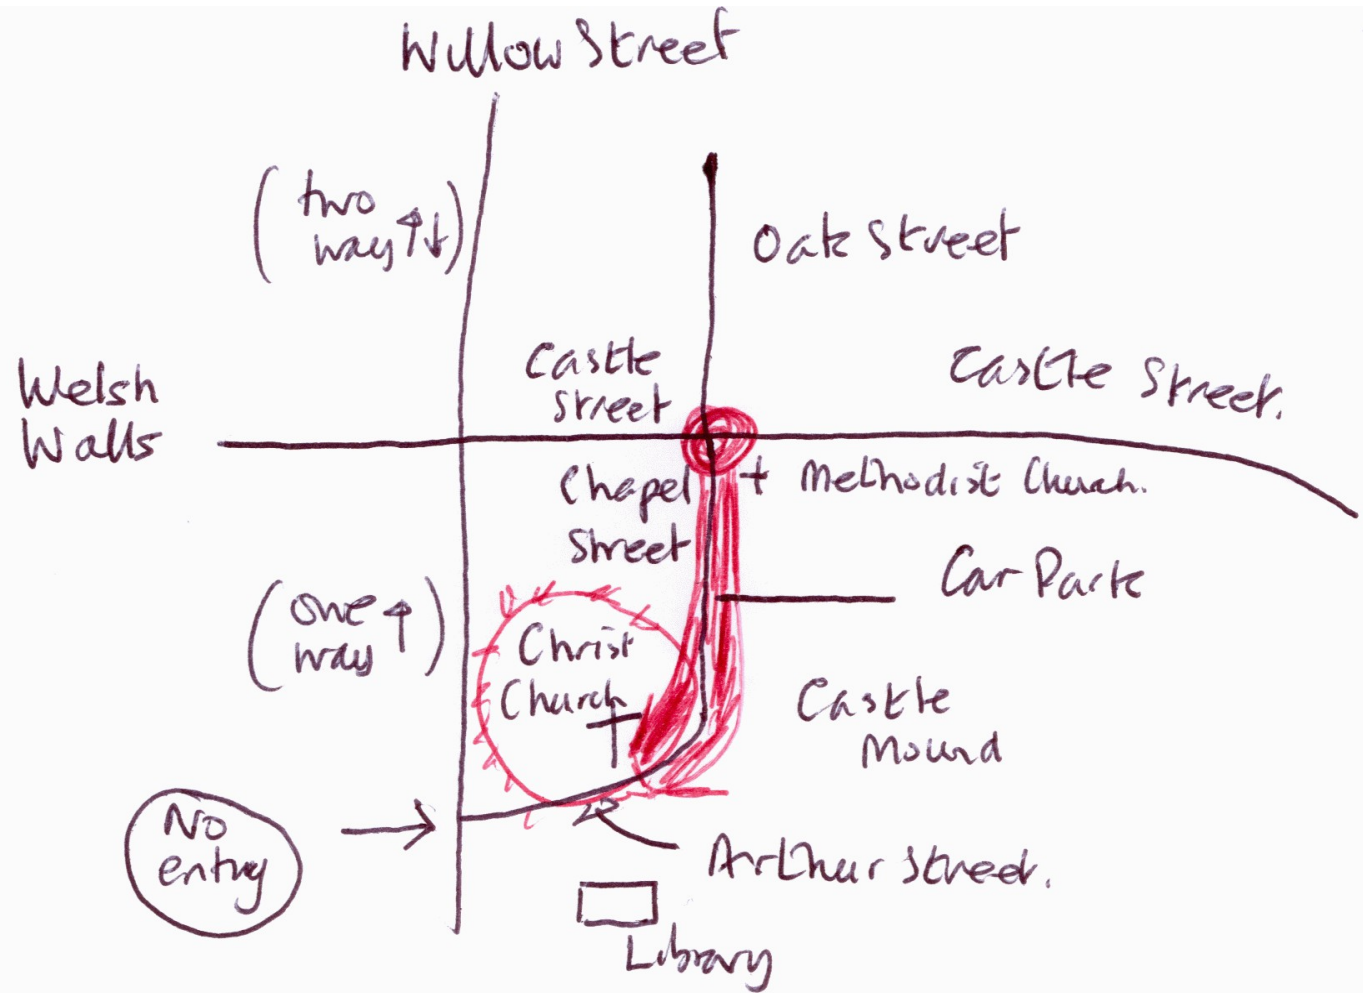 Willow Street
(two
way ↑↓)
Oak Street
Castle
Street
Castle Street.
Welsh
Walls
Chapel
Street
+ Methodist Church.
Car Park
(one
way ↑)
Christ
Church
Castle
Mound
No
entry
Arthur Street.
Library